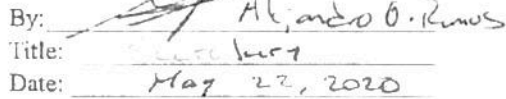 By: Alejandro O. Ramos
Title: Secretary
Date: May 22, 2020